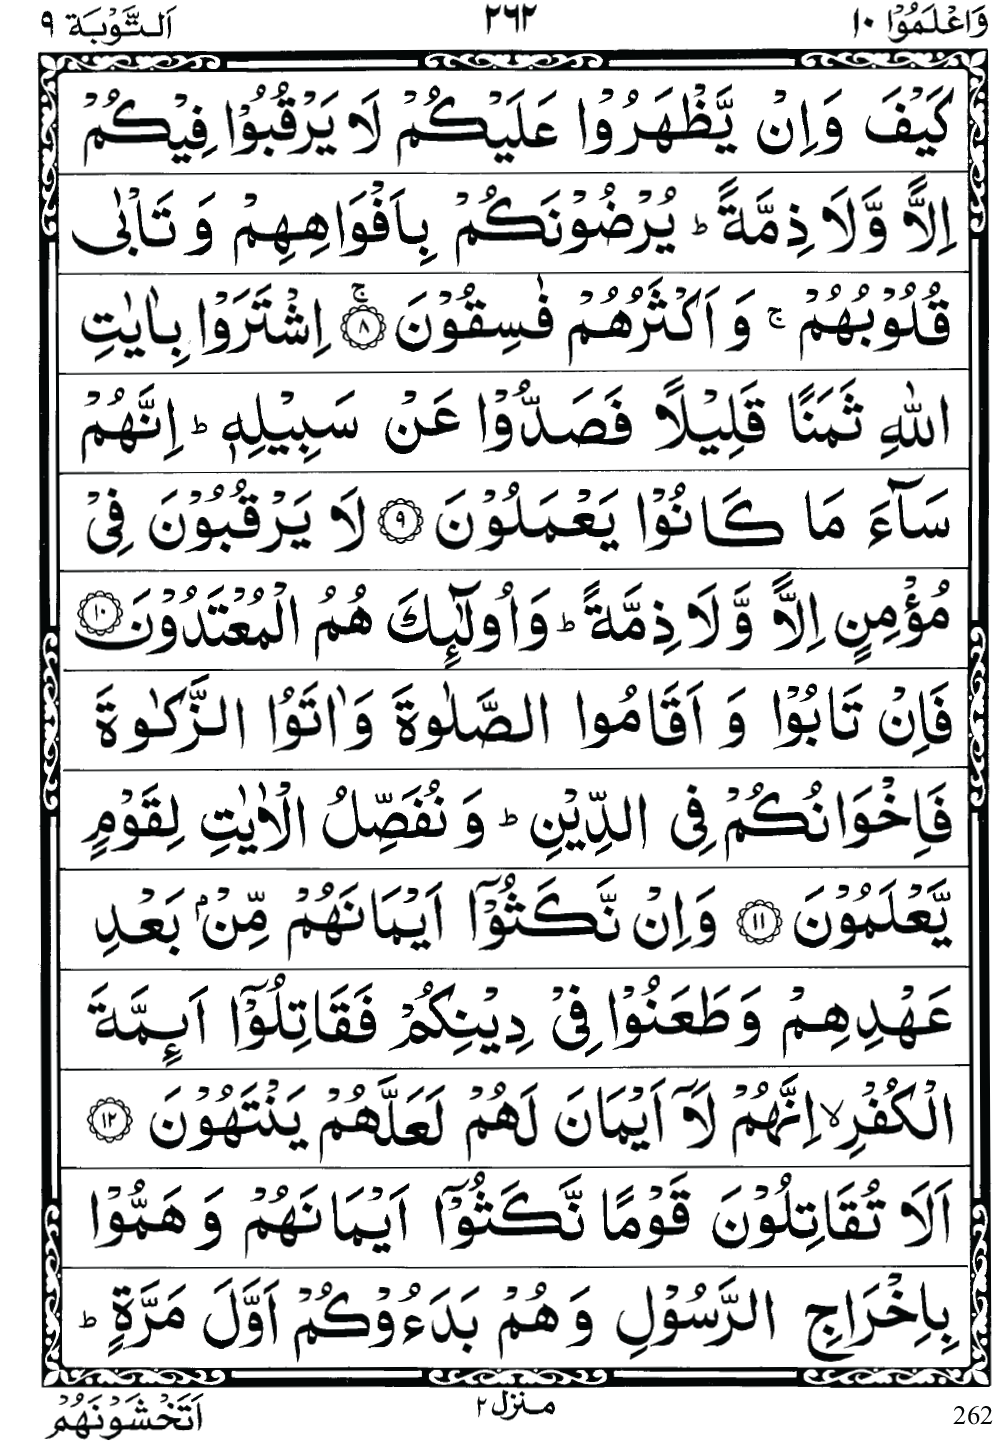 وَاعْلَمُوْٓا ١٠ ٢٦٢ اَلتَّوْبَة ٩
كَيْفَ وَاِنْ يَّظْهَرُوْا عَلَيْكُمْ لَا يَرْقُبُوْا فِيْكُمْ
اِلًّا وَّلَا ذِمَّةً ؕ يُرْضُوْنَكُمْ بِاَفْوَاهِهِمْ وَ تَاْبٰى
قُلُوْبُهُمْ ۚ وَ اَكْثَرُهُمْ فٰسِقُوْنَ ۚ ﴿٨﴾ اِشْتَرَوْا بِاٰيٰتِ
اللّٰهِ ثَمَنًا قَلِيْلًا فَصَدُّوْا عَنْ سَبِيْلِهٖ ؕ اِنَّهُمْ
سَآءَ مَا كَانُوْا يَعْمَلُوْنَ ﴿٩﴾ لَا يَرْقُبُوْنَ فِيْ
مُؤْمِنٍ اِلًّا وَّلَا ذِمَّةً ؕ وَاُولٰٓئِكَ هُمُ الْمُعْتَدُوْنَ ﴿١٠﴾
فَاِنْ تَابُوْا وَ اَقَامُوا الصَّلٰوةَ وَاٰتَوُا الزَّكٰوةَ
فَاِخْوَانُكُمْ فِي الدِّيْنِ ؕ وَ نُفَصِّلُ الْاٰيٰتِ لِقَوْمٍ
يَّعْلَمُوْنَ ﴿١١﴾ وَاِنْ نَّكَثُوْٓا اَيْمَانَهُمْ مِّنْۢ بَعْدِ
عَهْدِهِمْ وَطَعَنُوْا فِيْ دِيْنِكُمْ فَقَاتِلُوْٓا اَئِمَّةَ
الْكُفْرِ ۙ اِنَّهُمْ لَآ اَيْمَانَ لَهُمْ لَعَلَّهُمْ يَنْتَهُوْنَ ﴿١٢﴾
اَلَا تُقَاتِلُوْنَ قَوْمًا نَّكَثُوْٓا اَيْمَانَهُمْ وَ هَمُّوْا
بِاِخْرَاجِ الرَّسُوْلِ وَ هُمْ بَدَءُوْكُمْ اَوَّلَ مَرَّةٍ ؕ
262 منزل ٢ اَتَخْشَوْنَهُمْ